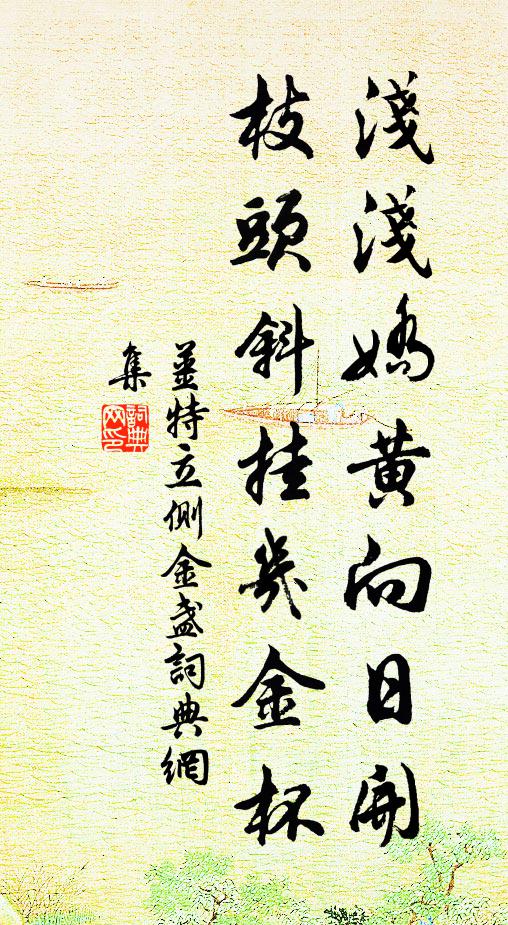 淺淺嬌黃向日開
枝頭斜挂幾金杯
姜特立側金盞詞典網
集
詞典
网印